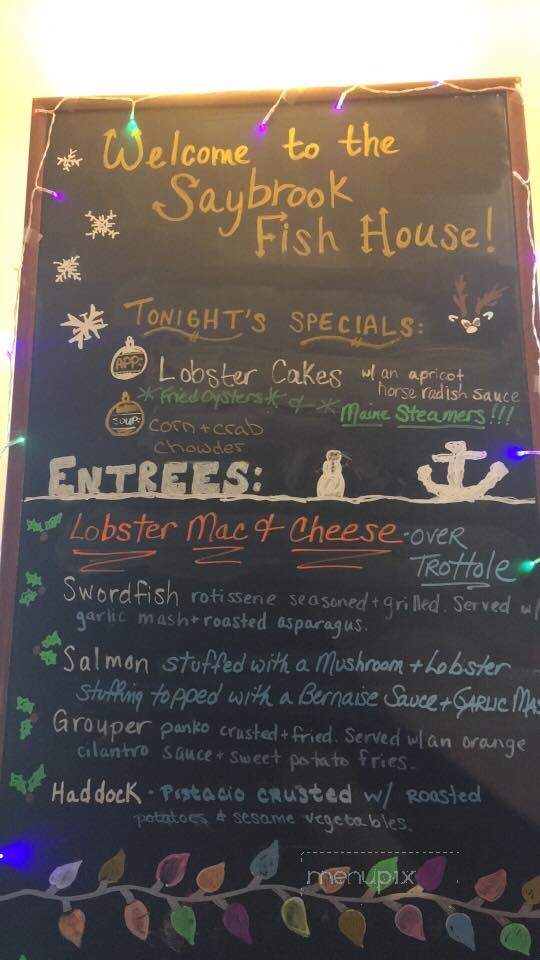 Welcome to the
Saybrook
Fish House!
TONIGHT'S SPECIALS:
APP: Lobster Cakes w/ an apricot
horse radish sauce
*Fried Oysters* & * Maine Steamers!!!
SOUP: corn + crab
chowder
ENTREES:
Lobster Mac & Cheese - OVER
TROTTOLE
Swordfish rotisserie seasoned + grilled. Served w/
garlic mash + roasted asparagus.
Salmon stuffed with a Mushroom + Lobster
Stuffing topped with a Bernaise Sauce + GARLIC MAS
Grouper panko crusted + fried. Served w/an orange
cilantro sauce + sweet potato fries.
HADDOCK - Pistacio crusted w/ ROASTED
potatoes & sesame vegetables.
menupix